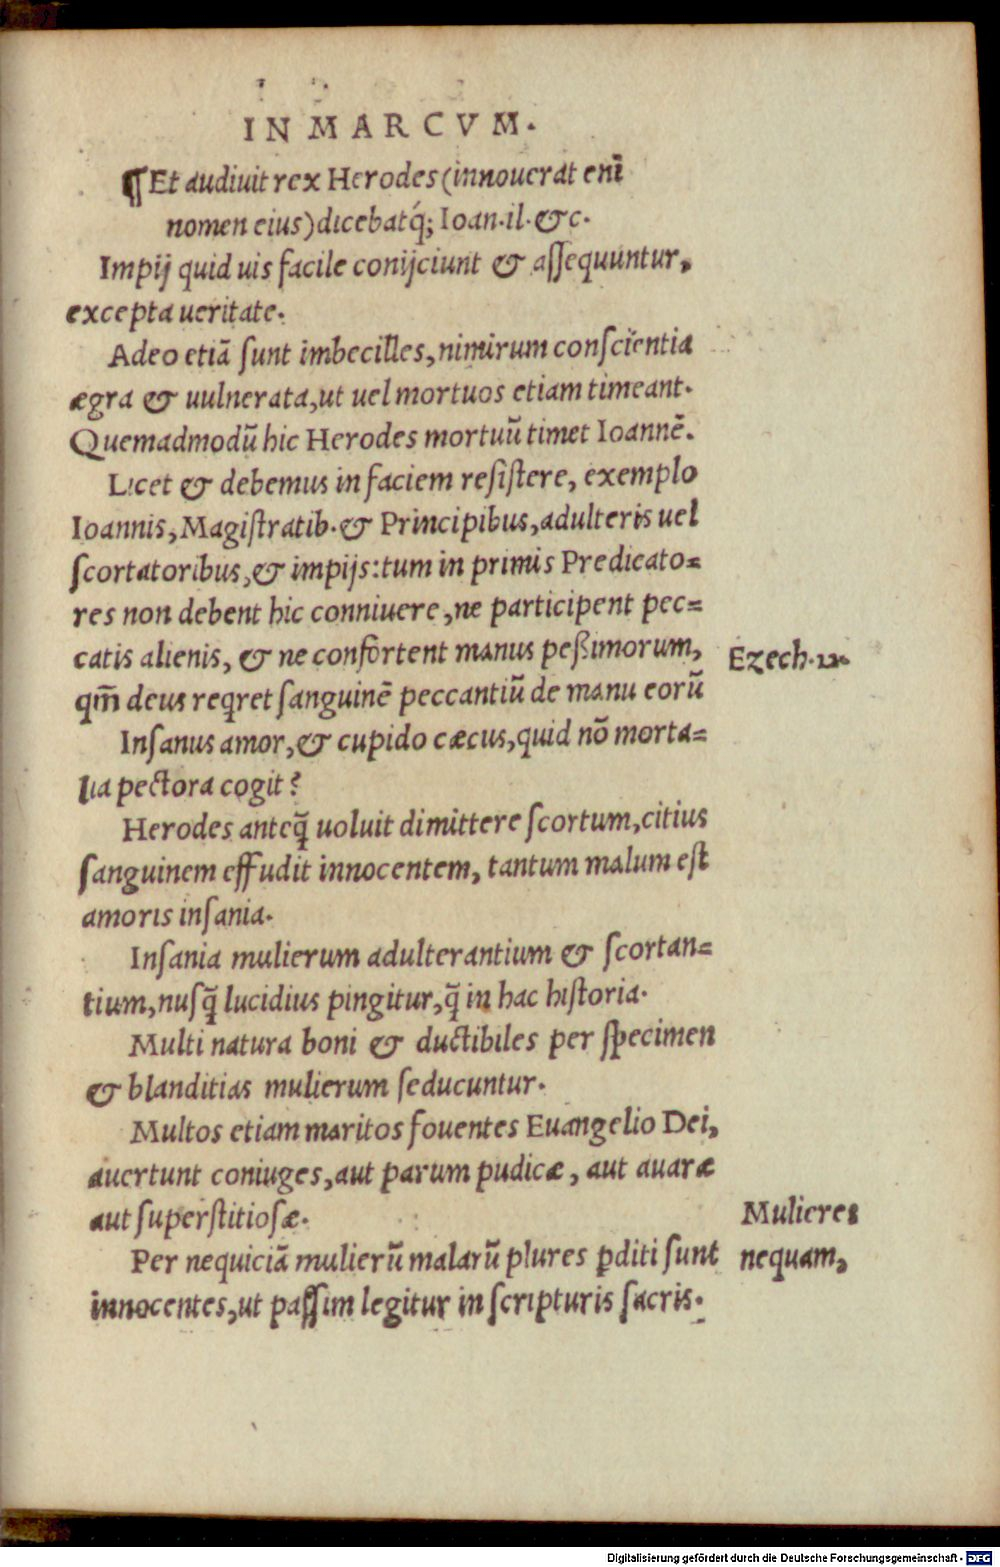 IN MARCVM.
¶Et audiuit rex Herodes (innouerat enĩ
nomen eius) dicebatq́; Ioan.il.&c.
Impij quid uis facile conijciunt & assequuntur,
excepta ueritate.
Adeo etiã sunt imbecilles, nimirum conscientia
ægra & uulnerata, ut uel mortuos etiam timeant.
Quemadmodũ hic Herodes mortuũ timet Ioannẽ.
Licet & debemus in faciem resistere, exemplo
Ioannis, Magistratib. & Principibus, adulteris uel
scortatoribus, & impijs: tum in primis Predicato=
res non debent hic conniuere, ne participent pec=
catis alienis, & ne confortent manus peßimorum,
qm̃ deus reqret sanguinẽ peccantiũ de manu eorũ
Ezech.22.
Insanus amor, & cupido cæcus, quid nõ morta=
lia pectora cogit?
Herodes anteq̃ uoluit dimittere scortum, citius
sanguinem effudit innocentem, tantum malum est
amoris insania.
Insania mulierum adulterantium & scortan=
tium, nusq̃ lucidius pingitur, q̃ in hac historia.
Multi natura boni & ductibiles per specimen
& blanditias mulierum seducuntur.
Multos etiam maritos fouentes Euangelio Dei,
auertunt coniuges, aut parum pudicæ, aut auaræ
aut superstitiosæ.
Mulieres
nequam,
Per nequiciã mulierũ malarũ plures ꝑditi sunt
innocentes, ut passim legitur in scripturis sacris.
Digitalisierung gefördert durch die Deutsche Forschungsgemeinschaft - DFG